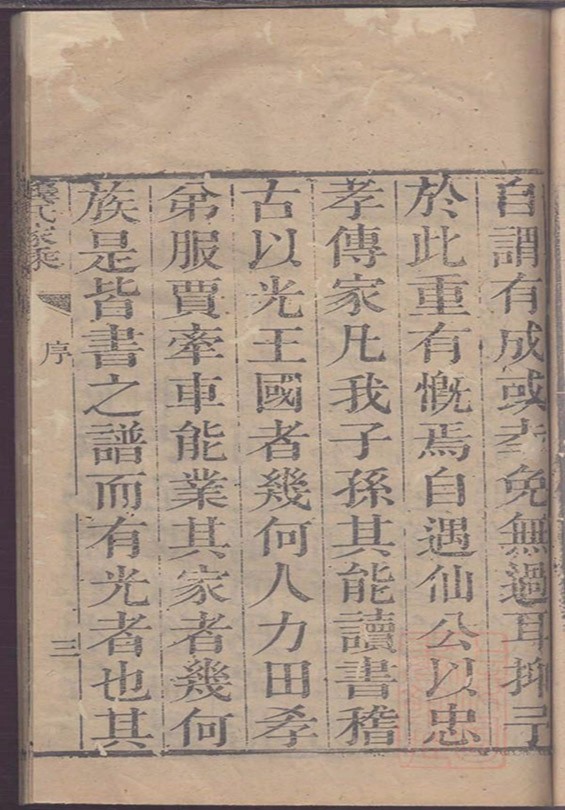 自謂有成或幸免無過耳抑予
於此重有慨焉自遇仙公以忠
孝傳家凡我子孫其能讀書稽
古以光王國者幾何人力田孝
弟服賈牽車能業其家者幾何
族是皆書之譜而有光者也其
氏家乘
序
三